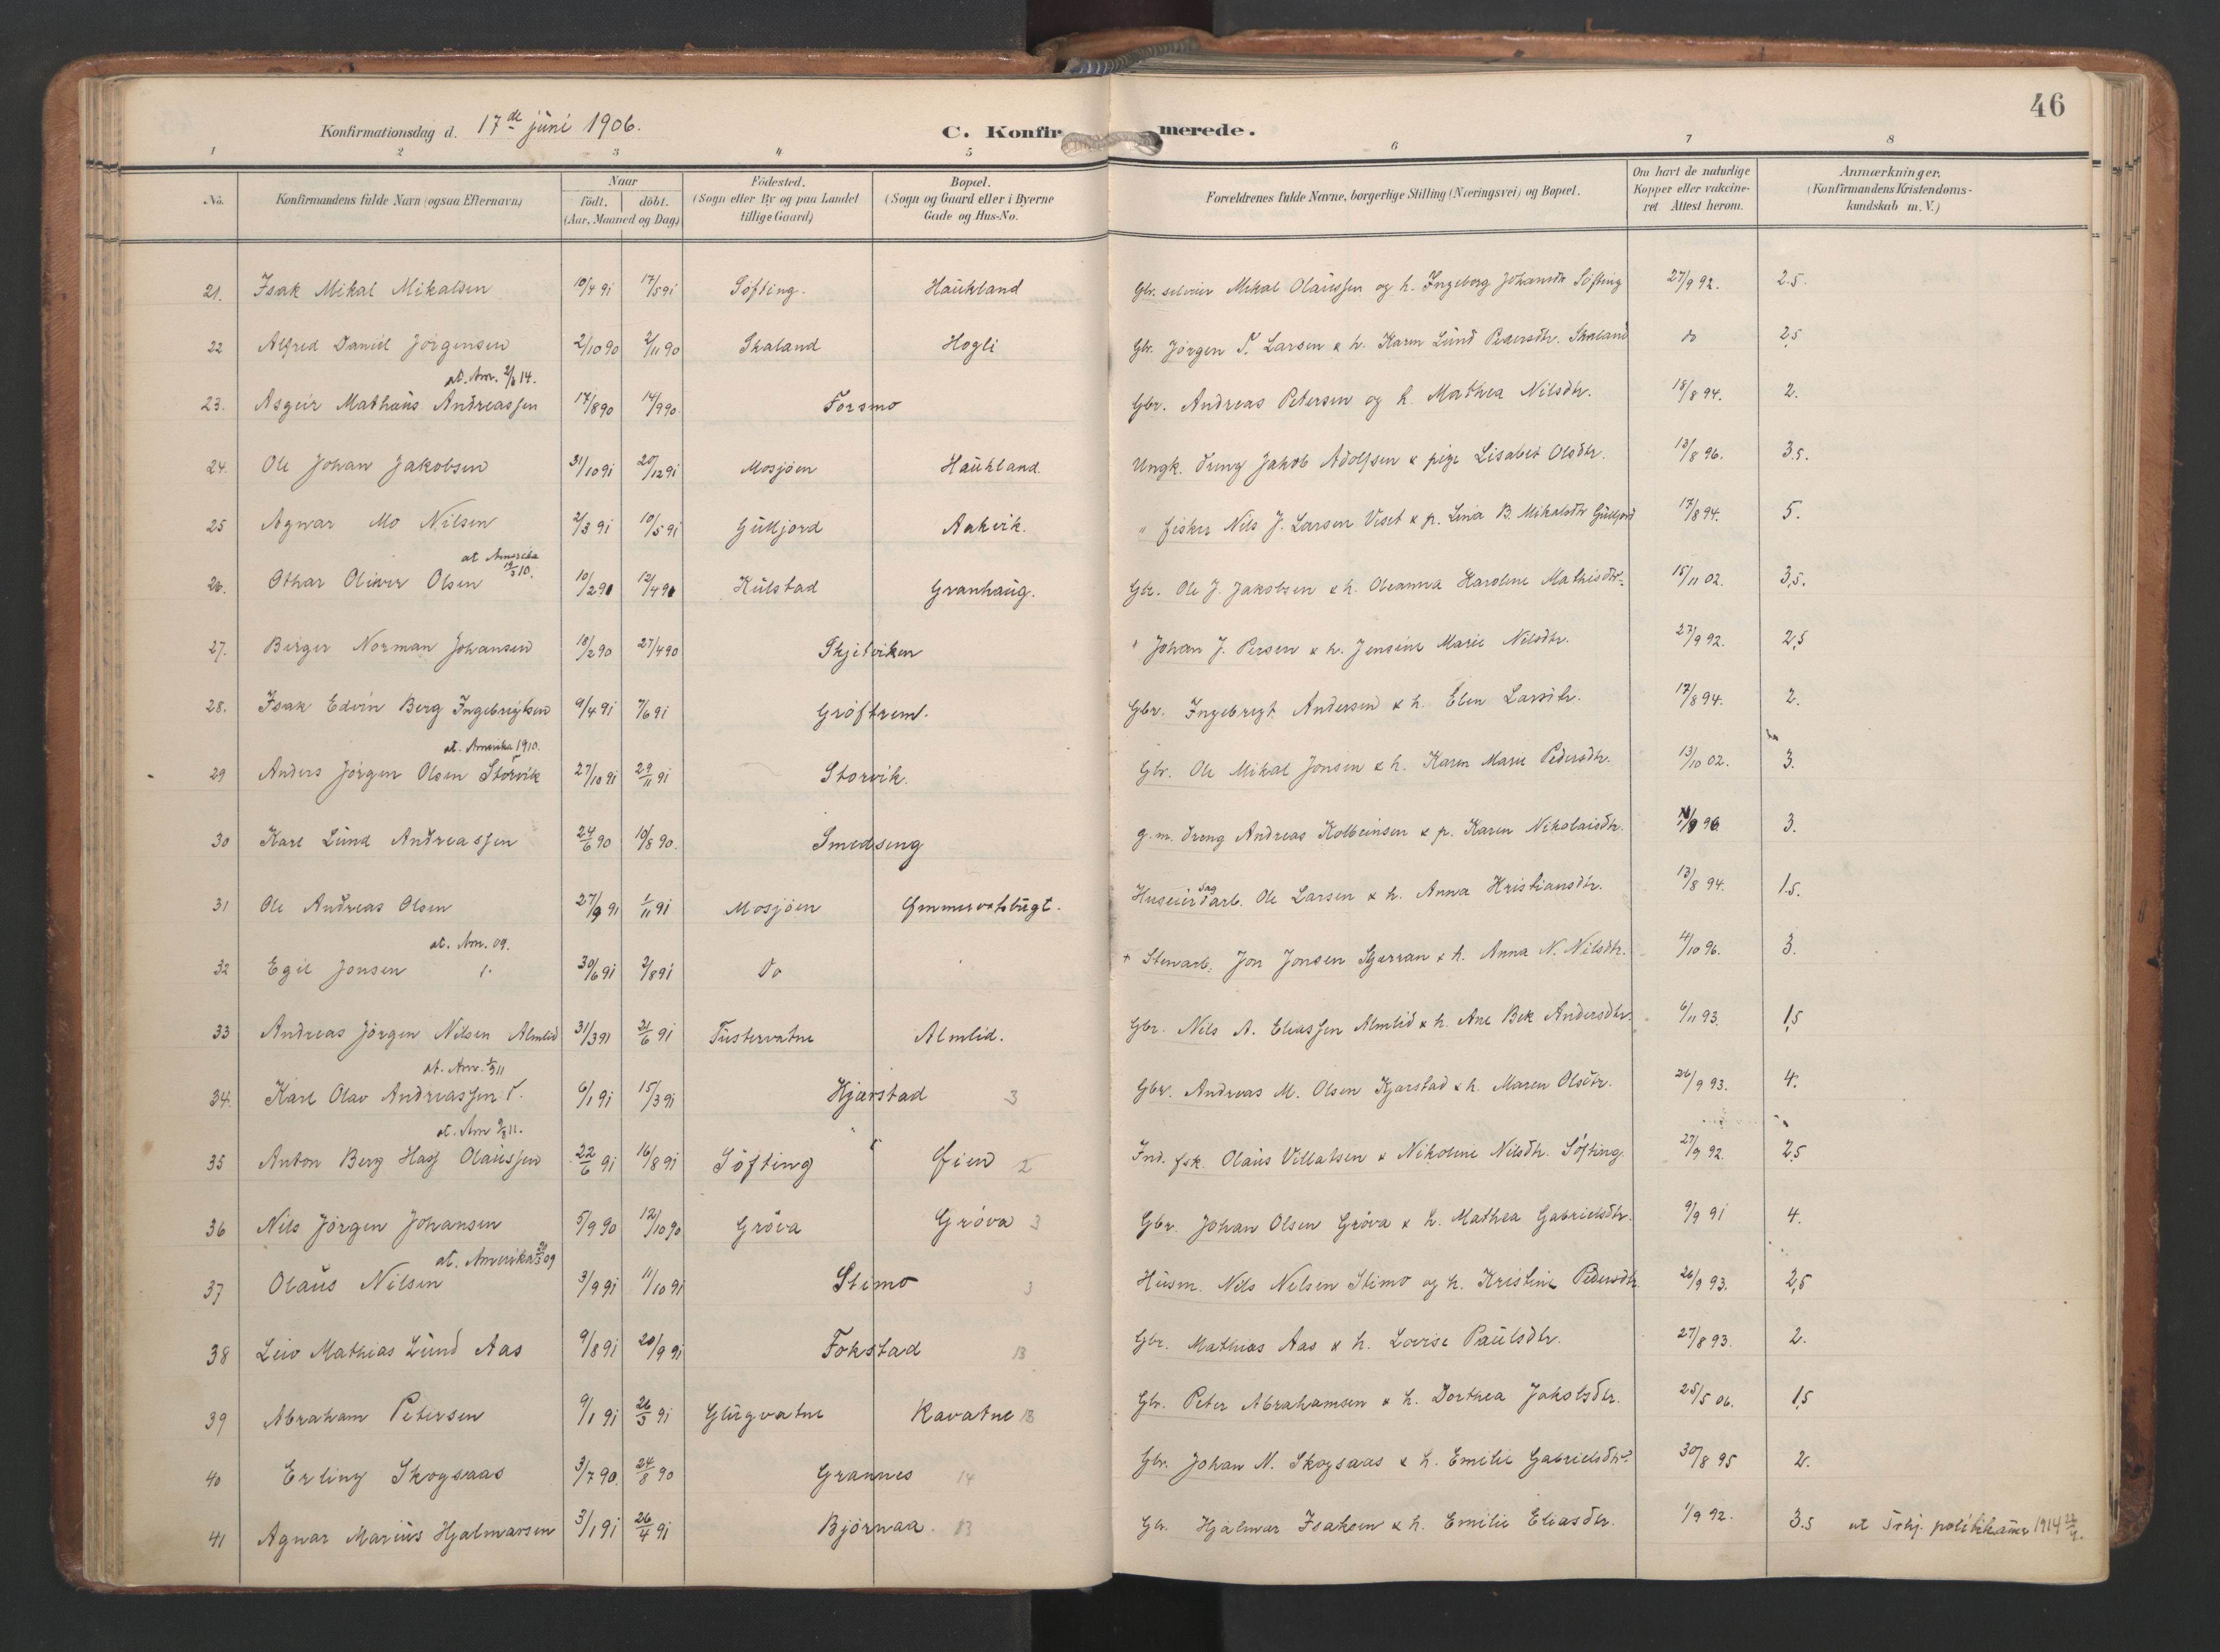 46
Konfirmationsdag d. 17de juni 1906. C. Konfirmerede.
1 2 3 4 5 6 7 8
No. Konfirmandens fulde Navn (ogsaa Efternavn) Naar födt. döbt. (Aar, Maaned og Dag) Födested. (Sogn eller By og paa Landet tillige Gaard) Bopæl. (Sogn og Gaard eller i Byerne Gade og Hus-No. Forældrenes fulde Navne, borgerlige Stilling (Næringsvei) og Bopæl. Om havt de naturlige Kopper eller vakcineret. Attest herom. Anmærkninger. (Konfirmandens Kristendomskundskab m. V.)
21. Isak Mikal Mikalsen 10/4 91 17/5 91 Söfting. Haukland Gbr. Mikal Olaussen og h. Ingeborg Johansdtr Söfting 27/9 92. 2.5.
22 Alfred Daniel Jörgensen 2/10 90 2/11 90 Skaland Hogli Gbr. Jörgen T. Larsen & h. Karen Lund Pedersdtr. Skaland do 2,5
at. Am. 2/3 14.
23. Asgeir Mathæus Andreassen 17/8 90 14/9 90 Forsmo Gbr. Andreas Petersen og h. Mathea Nilsdtr. 18/8 94. 2.
24. Ole Johan Jakobsen 31/10 91 20/12 91 Mosjöen Haukland. Ungk. dreng Jakob Adolfsen & pige Lisabet Olsdtr. 13/8 96. 3.5.
25 Agnar Mo Nilsen 2/3 91 10/5 91 Gulfjord Aakvik. " fisker Nils J. Larsen Veset & p. Lina B. Mikalsdtr Gulfjord 17/8 94. 5.
at Amerika 19/3 10.
26. Othar Oliver Olsen 10/2 90 12/4 90 Kulstad Granhaug. Gbr. Ole J. Jakobsen & h. Oleanna Karoline Mathisdtr. 15/11 02. 3,5.
27. Birger Norman Johansen 18/2 90 27/4 90 Skjelviken " Johan J. Persen & h. Jensine Marie Nilsdtr. 27/9 92. 2,5
28. Isak Edvin Berg Ingebrigtsen 9/4 91 7/6 91 Gröftrem. Gbr. Ingebrigt Andersen & h. Elen Larsdtr. 17/8 94. 2.
at. Amerika 1910.
29 Anders Jörgen Olsen Storvik 27/10 91 29/11 91 Storvik. Gbr. Ole Mikal Jonsen & h. Karen Marie Pedersdtr. 13/10 02. 3.
30 Karl Lund Andreassen 24/6 90 10/8 90. Smedseng g.m. dreng Andreas Kolbeinsen & p. Karen Nikolaisdtr. /9 96 3.
31 Ole Andreas Olsen 27/9 91 1/11 91 Mosjöen Ommervatsbugt. Huseier dag arb. Ole Larsen & h. Anna Kristiansdtr. 13/8 94. 1.5.
at. Am. 09.
32 Egil Jonsen 30/6 91 2/8 91 Do Stenarb. Jon Jonsen Kjerran & h. Anna N. Nilsdtr. 4/10 96. 3.
33 Andreas Jörgen Nilsen Almlid 31/3 91 21/6 91 Tustervatne Almlid. Gbr. Nils A. Eliassen Almlid & h. Ane Bek Andersdtr. 6/11 93. 1,5
at. Am. /3 11
34. Karl Olav Andreassen 6/1 91 15/3 91 Kjærstad 3 Gbr. Andreas M. Olsen Kjærstad & h. Maren Olsdtr. 26/9 93. 4.
at. Am 9/3 11.
35 Anton Berg Hass Olaussen 22/6 91 16/8 91 Söfting Eien Ind. fsk. Olaus Villatsen & Nikoline Nilsdtr. Söfting 27/9 92. 2,5
36 Nils Jörgen Johansen 5/9 90 12/10 90 Gröva Gröva 3 Gbr. Johan Olsen Gröva & h. Mathea Gabrielsdtr. 9/9 91 4.
at. Amerika 09
37 Olaus Nilsen 3/9 91 11/10 91 Stimo 3 Husm. Nils Nilsen Stimo og h. Kristine Pedersdtr. 26/9 93. 2,5
38 Leiv Mathias Lund Aas 9/8 91 20/9 91 Fokstad 13 Gbr. Mathias Aas & h. Lovise Paulsdtr. 27/8 93. 2.
39 Abraham Petersen 9/1 91 26/3 91 Glugvatne Ravatne 13 Gbr. Peter Abrahamsen & h. Dorthea Jakobsdtr. 25/5 06. 1,5
40 Erling Skogsaas 3/7 90. 24/8 90 Grannes 14 Gbr. Johan N. Skogsaas & h. Emilie Gabrielsdtr. 30/8 95 2.
41 Agnar Marius Hjalmarsen 3/1 91 26/4 91 Björnaa. 13 Gbr. Hjalmar Isaksen & h. Emilie Eliasdtr. 1/9 92. 3.5 at Trhj. politikamer 1914